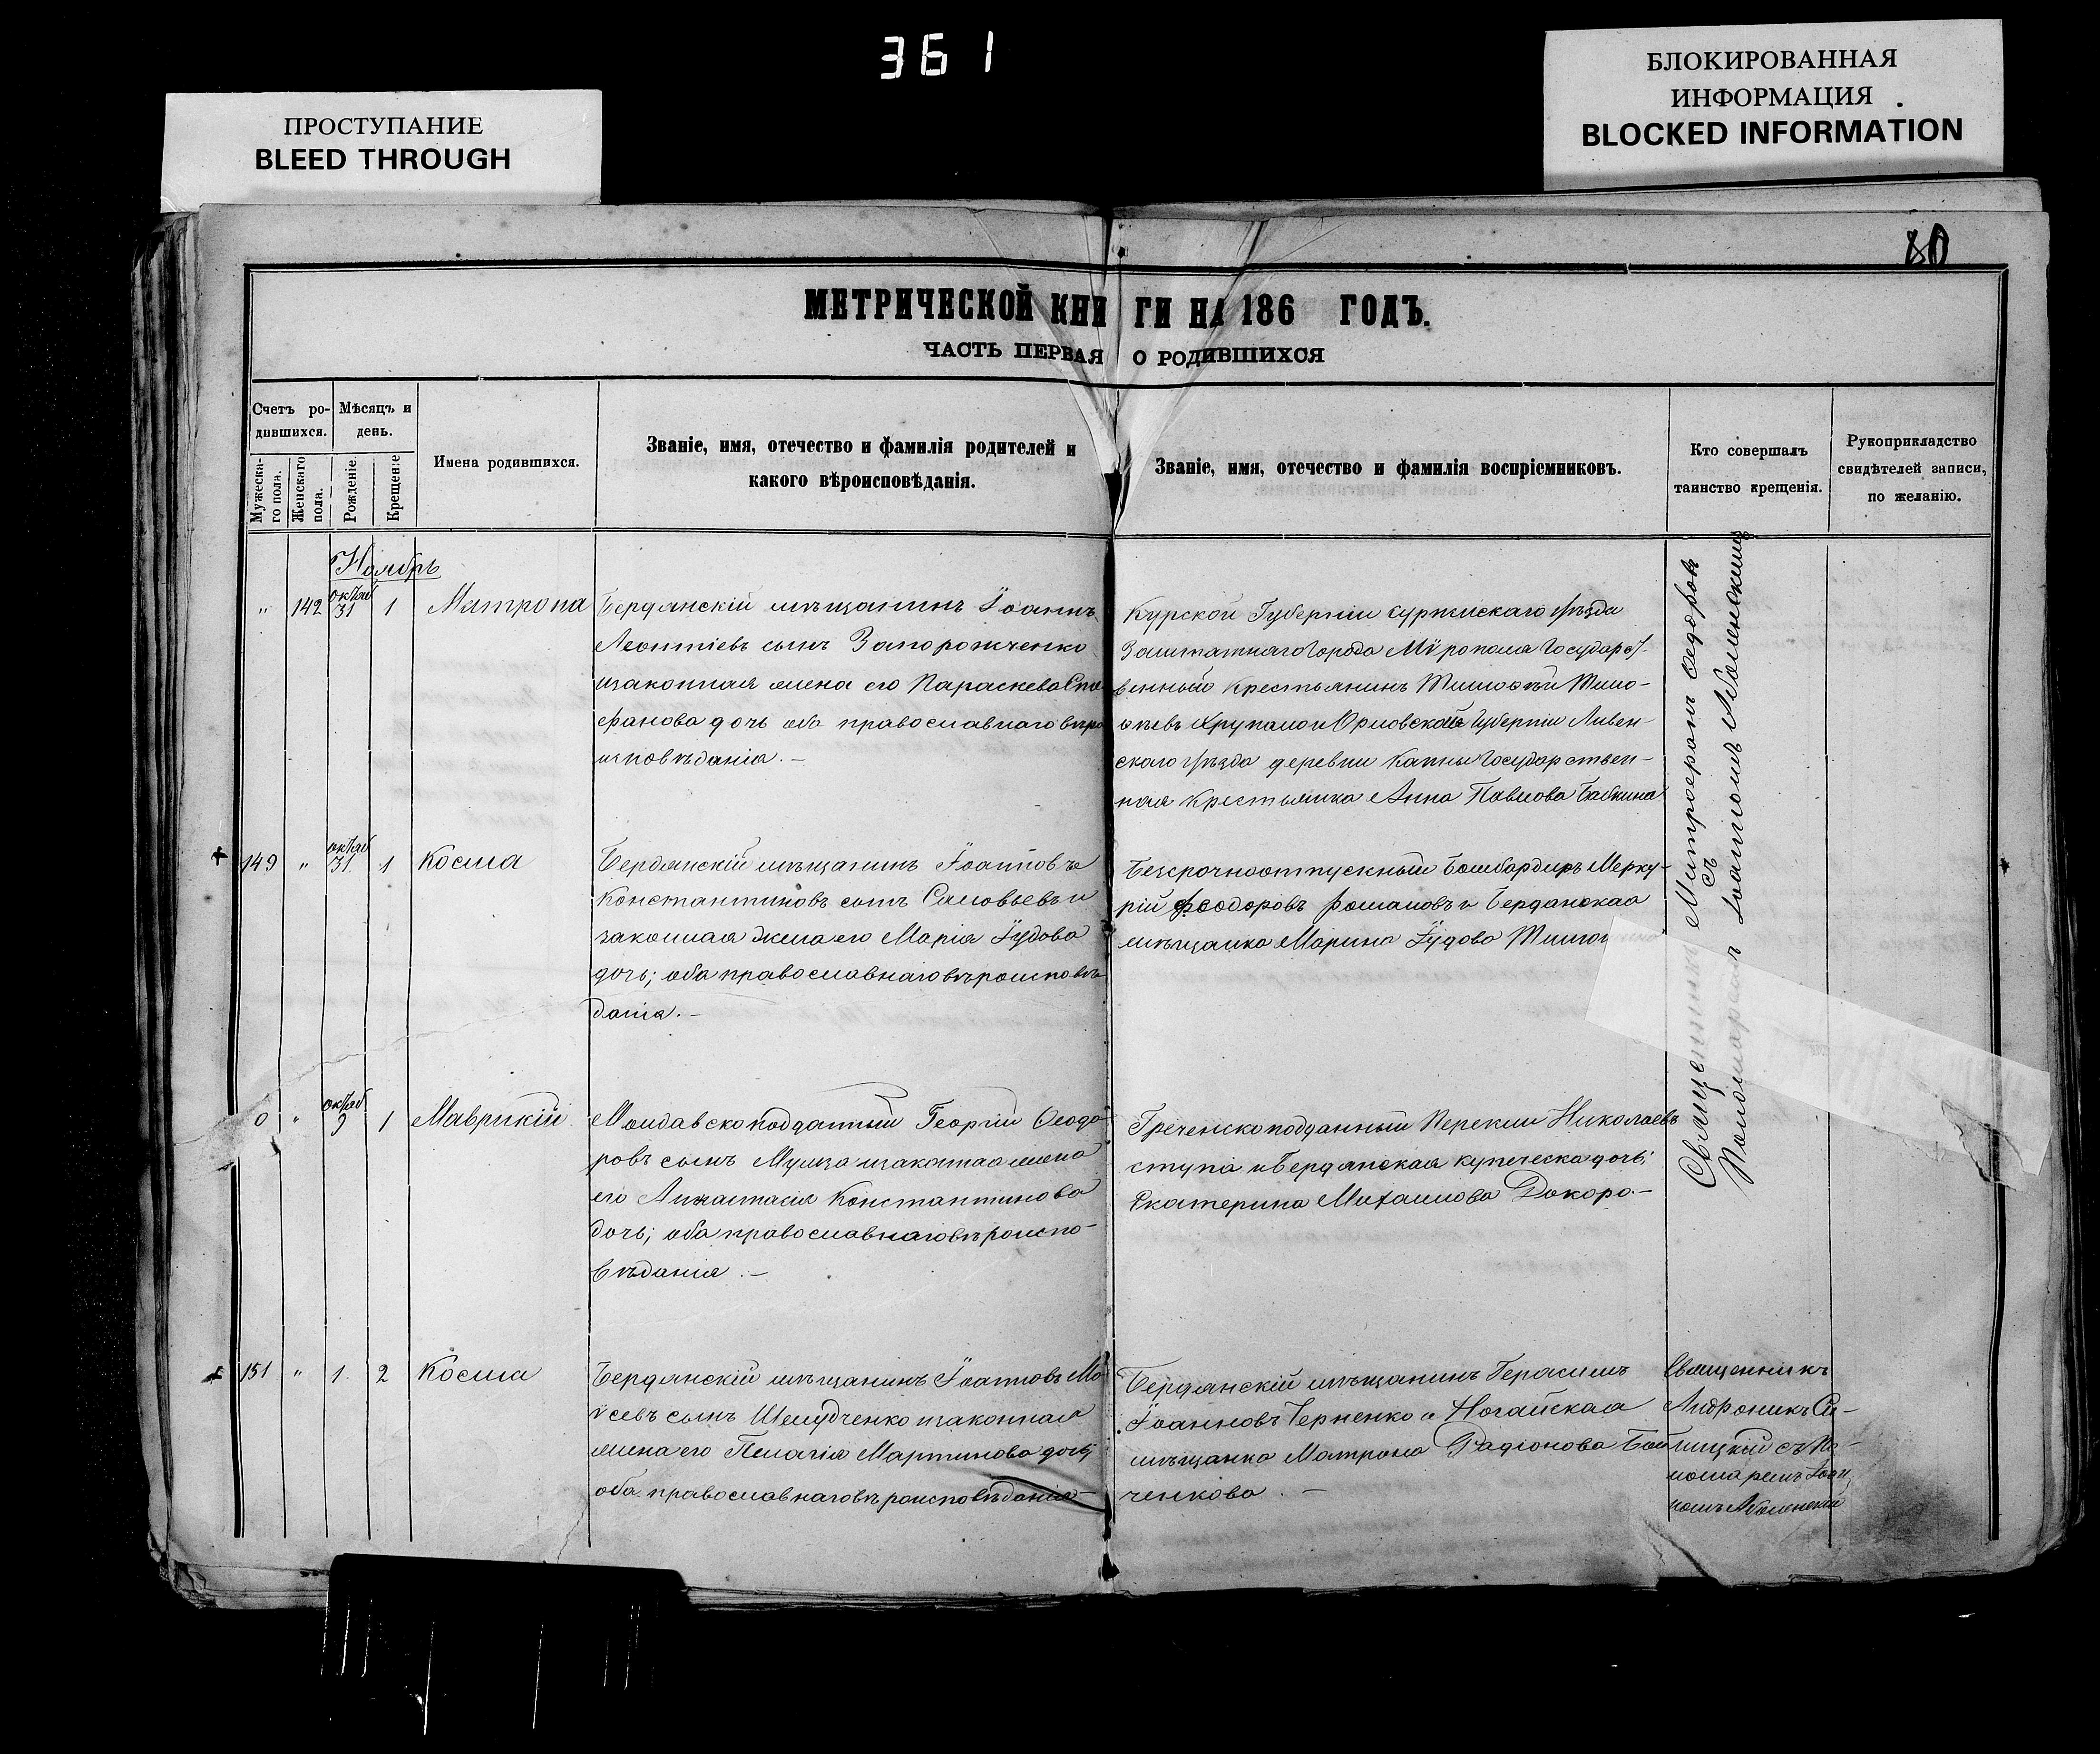 361
ПРОСТУПАНИЕ
BLEED THROUGH
БЛОКИРОВАННАЯ
ИНФОРМАЦИЯ
BLOCKED INFORMATION
80
МЕТРИЧЕСКОЙ КНИГИ НА 186 ГОДЪ.
ЧАСТЬ ПЕРВАЯ О РОДИВШИХСЯ
Счетъ ро-
дившихся.
Мужеска-
го пола.
Женскаго
пола.
Мѣсяцъ и
день.
Рожденіе.
Крещеніе
Имена родившихся.
Званіе, имя, отечество и фамилія родителей и
какого вѣроисповѣданія.
Званіе, имя, отечество и фамилія воспріемниковъ.
Кто совершалъ
таинство крещенія.
Рукоприкладство
свидѣтелей записи,
по желанію.
Ноябрь
" 142 31 1 Матрона
Бердянскій мѣщанинъ Іоаннъ
Леонтіевъ сынъ Запорожченко
изаконная жена его Параскева Сте
фанова дочь оба православнаго вѣро
исповѣданія. –
Курской Губерніи Суржискаго уѣзда
Заштатнаго города Міропола Государст-
венный Крестьянинъ Тимоѳей Тимо-
ѳеевъ и Орловской Губерніи Ливен-
скаго уѣзда деревни Государствен-
ная крестьянка Анна Павлова Бабкина
149 " 31 1 Косма
Бердянскій мѣщанинъ Іоанновъ
Константиновъ сынъ Соловьевъ и
законная жена его Марія Іудова
дочь; оба православнаго вѣроисповѣ
данія. –
Безсрочноотпускный Бомбардиръ Мерку-
рій Феодоровъ Романовъ и Бердянская
мѣщанка Марина Іудова
0 " 9 1 Маврикій
Молдавскоподданный Георгій Ѳеодо
ровъ сынъ изаконная жена
его Анастасія Константинова
дочь; оба православнаго вѣроиспо-
вѣданія. –
Греческоподданный Николаевъ
и Бердянская купеческа дочь;
Екатерина Михаилова –
Священникъ Митрофанъ Ѳедоровъ
съ
Пономаремъ Іоанномъ Аболенскимъ
151 " 1 2 Косма
Бердянскій мѣщанинъ Іоанновъ Мо
ѵсеевъ сынъ изаконная
жена его Пелагія Мартинова дочь;
оба православнаго вѣроисповѣданія –
Бердянскій мѣщанинъ Герасимъ
Іоанновъ Черненко и Ногайская
мѣщанка Матрона Радіонова
ченкова. –
Священникъ
Андроникъ Си-
лицкій съ По-
номаремъ Іоан
номъ Аболенским